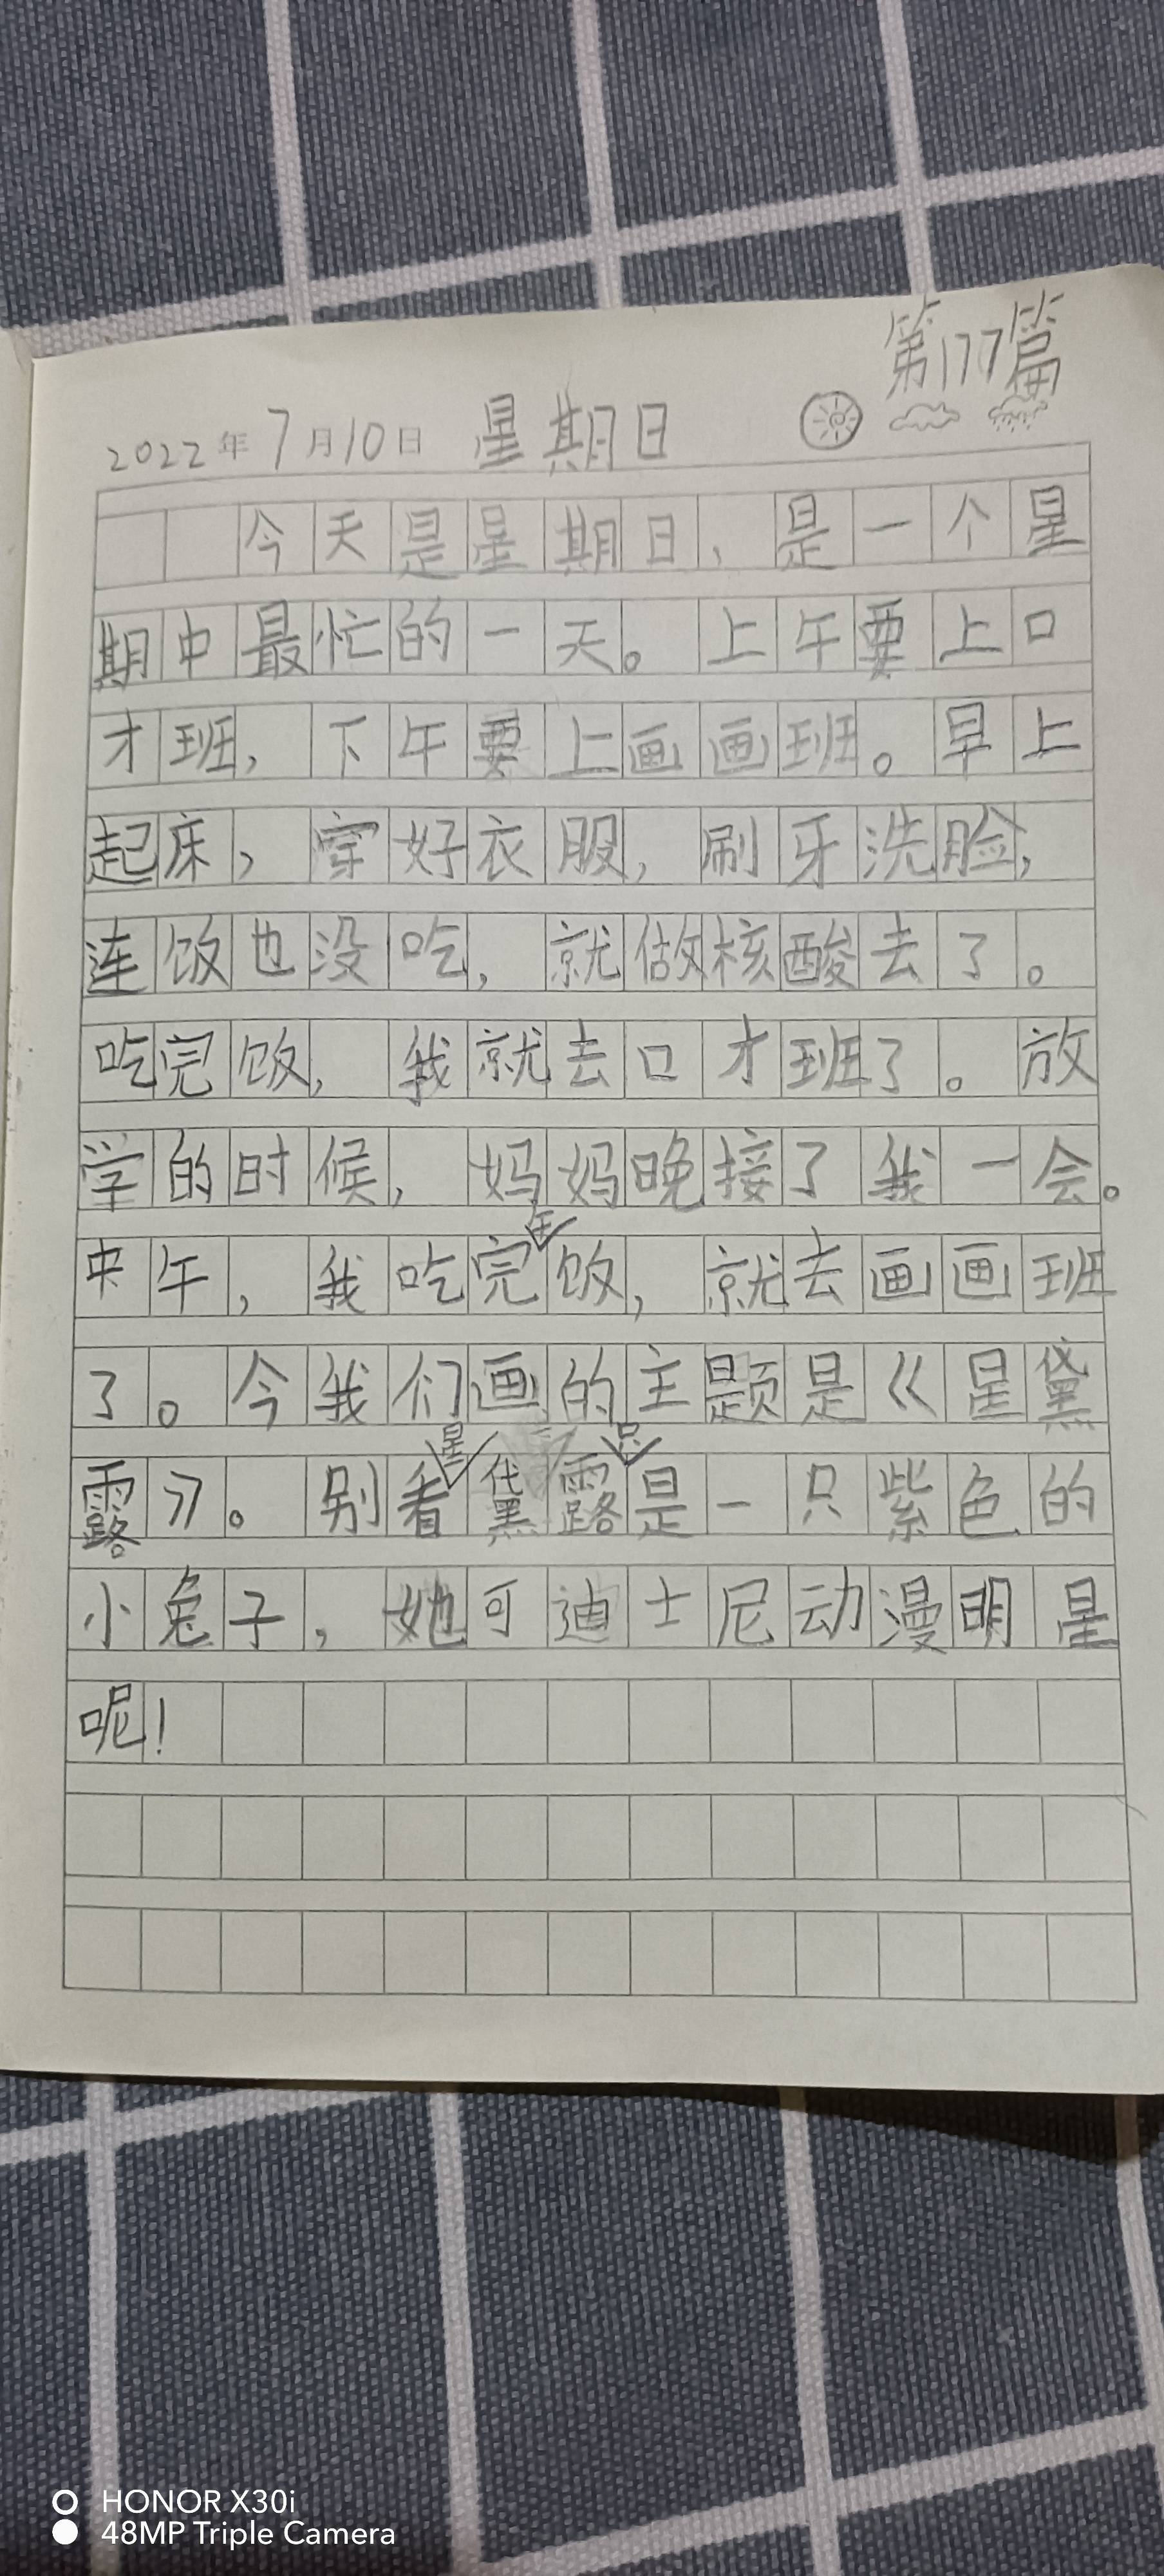 第177篇
2022年7月10日 星期日
今天是星期日，是一个星
期中最忙的一天。上午要上口
才班，下午要上画画班。早上
起床，穿好衣服，刷牙洗脸，
连饭也没吃，就做核酸去了。
吃完饭，我就去口才班了。放
学的时候，妈妈晚接了我一会。
午
中午，我吃完饭，就去画画班
了。今我们画的主题是《星黛
星 只
露》。别看黛露是一只紫色的
小兔子，她可迪士尼动漫明星
呢！
HONOR X30i
48MP Triple Camera